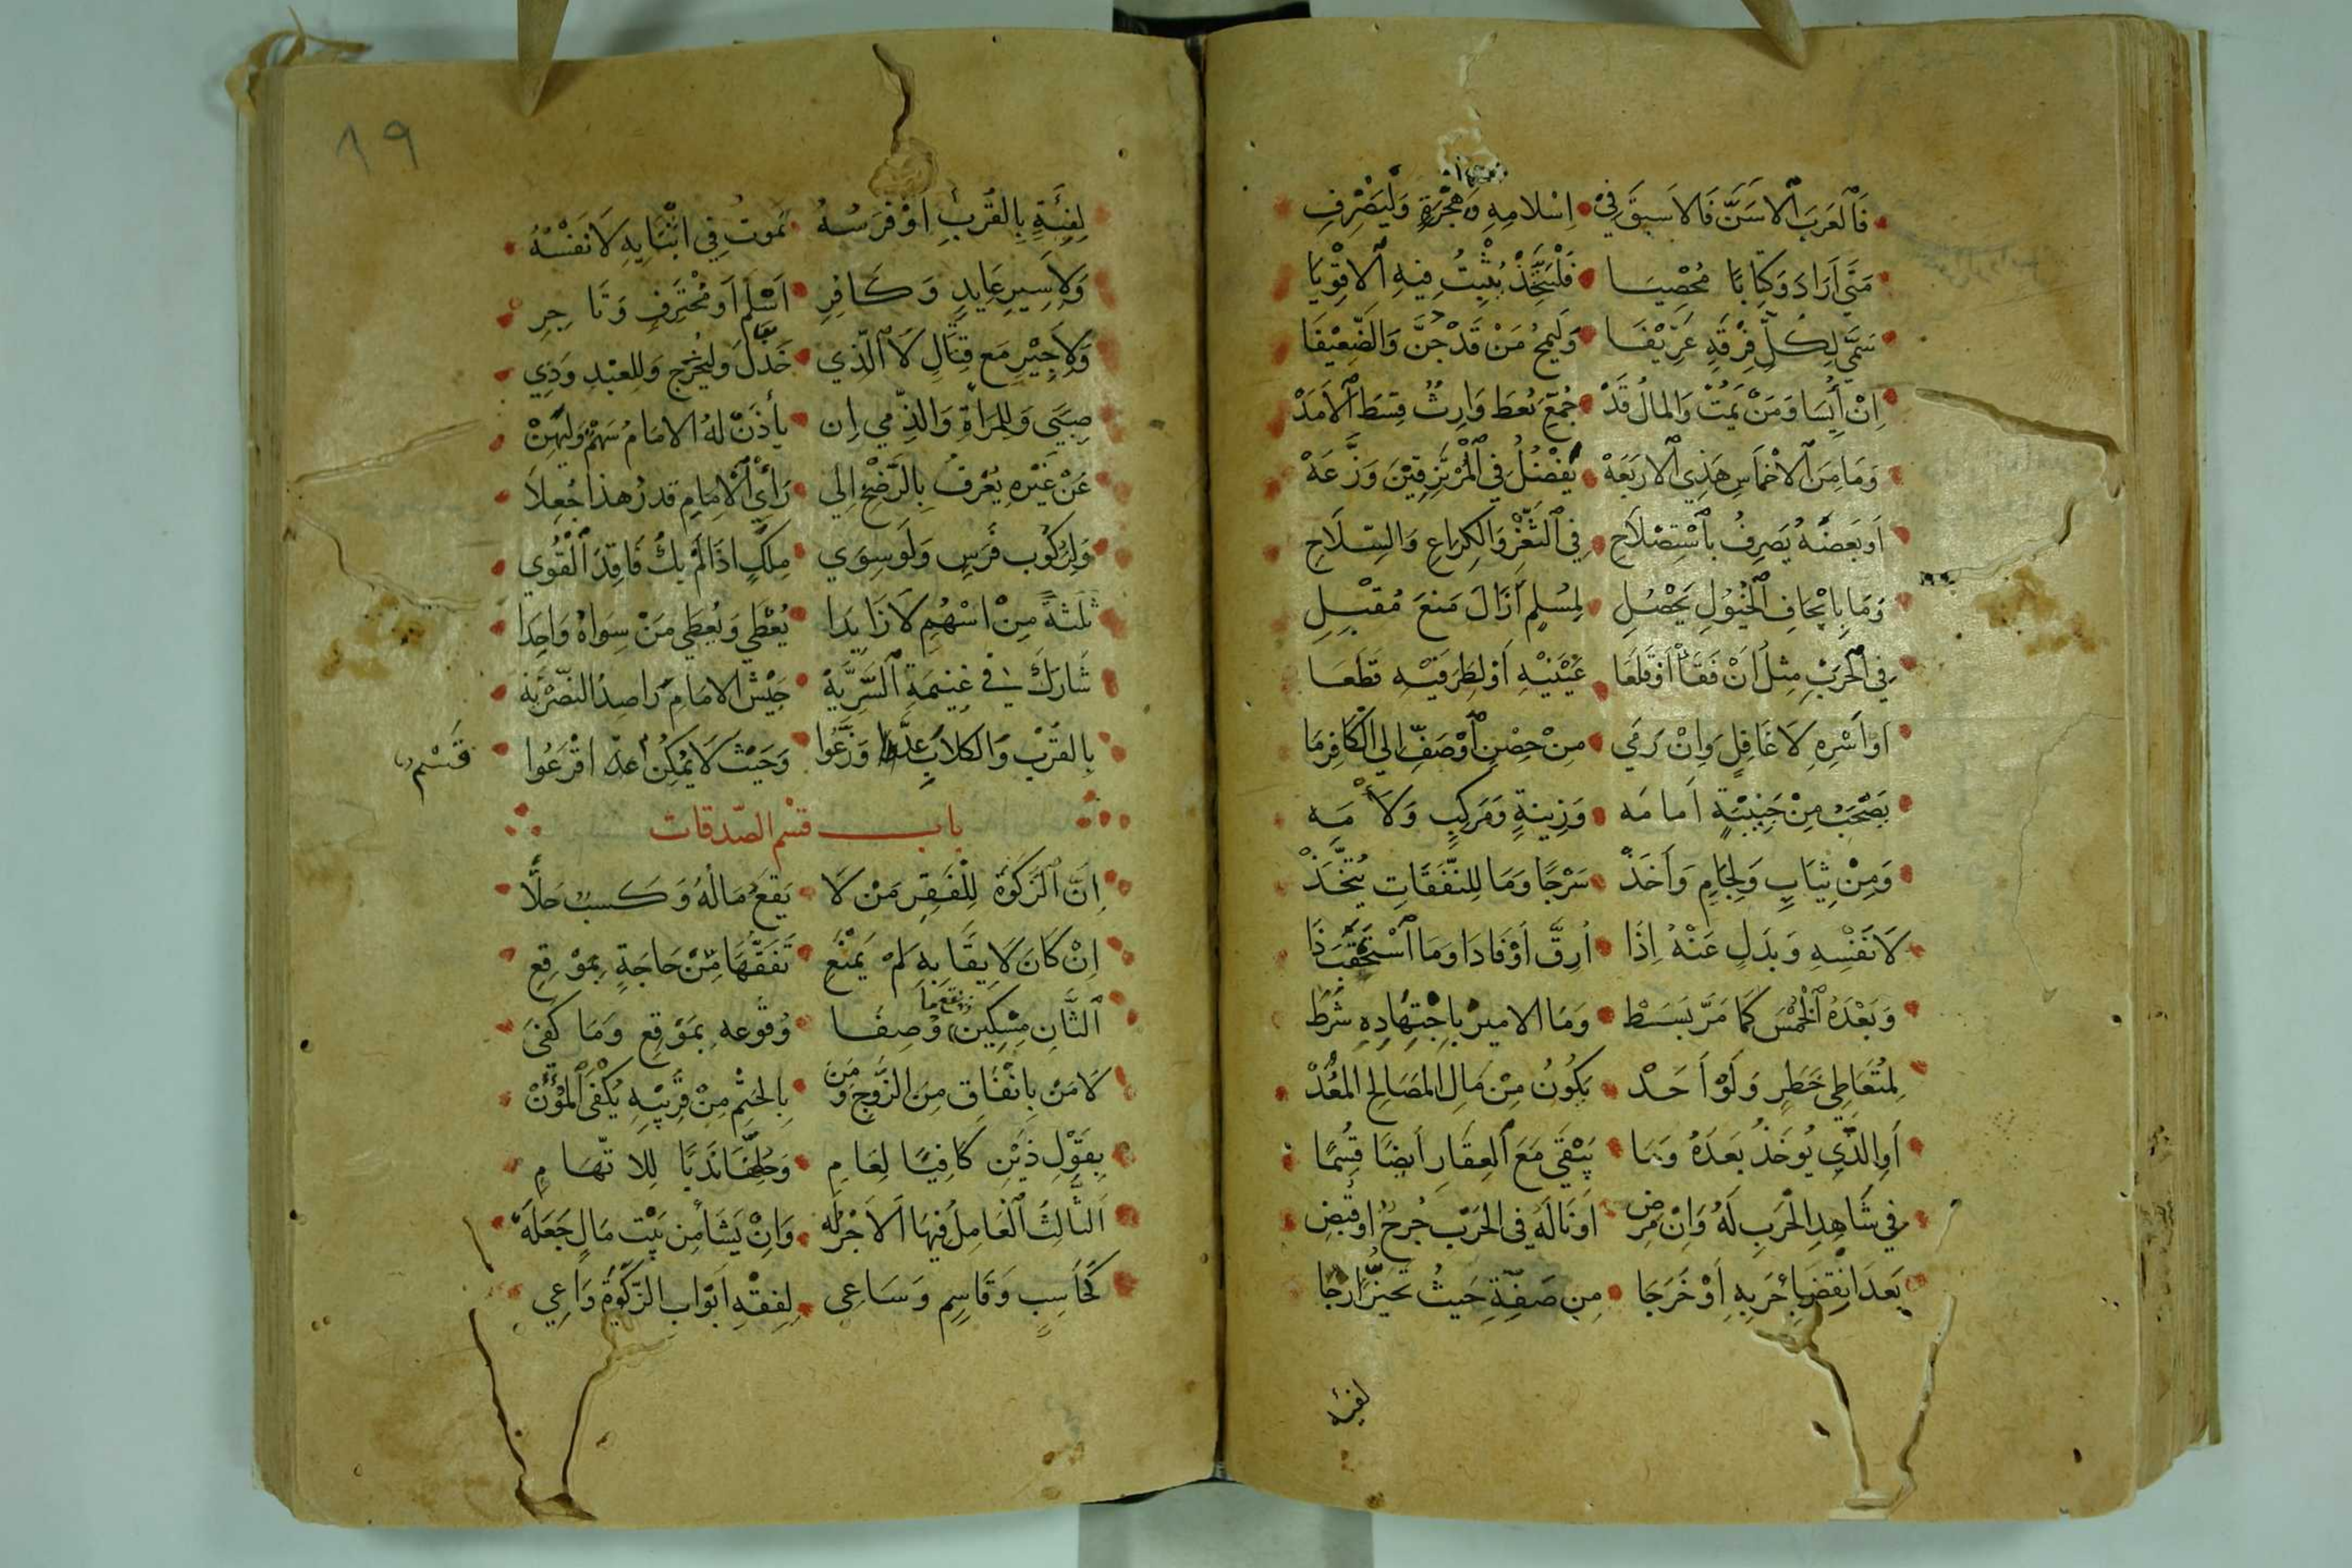 فَالْعَرَبَ الاَسَنَّ فَالاَسبَقَ فِيْ اِسْلامِهِ وَهِجْرَةٍ وَلْيَصْرِفِ
مَتَي اَرَادَ وَكِتَابًا مُحْصِيَا فَلْيَتَّخِذْ يُثْبِتُ فِيهِ الاقْوِيَا
سَمَّي لِكُلِّ فِرْقَةٍ عَرِّيْفَا وَلْيَمحُ مَنْ قَدْ جُنَّ وَالضَّعِيْفَا
اِنْ أَيِسَا وَمَنْ يَمُتْ وَالمالُ قَدْ جُمِّعَ يُعطَ وَارِثٌ قِسطَ الاَمَدْ
وَمَا مِنَ الاخْمَاسِ هَذِي الاربَعَهْ يَفْضُلُ فِي المُرتَزِقِيْنَ وَزَّعَهْ
اَو بَعضَهُ يُصرِفُ بِاسْتِصْلاَحِ فِي الثَّغْرِ وَالكِرَاعِ وَالسِّلاَحِ
وَمَا بِايْجَافِ الخُيُولِ يَحْصُلِ لِمُسْلِمٍ اَزَالَ مَنعَ مُقْبِلِ
فِي الحَربِ مِثلُ اَنْ فَقَا اَوْ قَلَعَا عَيْنَيْهِ اَوْ لِطَرَفَيْهِ قَطَعَا
اَوْ اَسْرِهِ لاَ غَافِلٍ وَاِنْ رَمَي مِنْ حِصْنٍ اَوْ صَفٍّ اِلي الكَافِرِ مَا
يَصْحَبُ مِنْ جَنِيْبَةٍ اَمامَه وَزِينَةٍ وَمَركِبٍ وَلأْمَه
وَمِنْ ثِيَابٍ وَلِجَامٍ وَاَخَذْ سَرْجًا وَمَا لِلنَّفَقَاتِ يُتَّخَذْ
لاَ نَفْسِهِ وَبَدَلٍ عَنْهُ اِذَا اُرِقَّ اَوْ فَادَا وَمَا اسْتَحْقَبَ ذَا
وَبَعْدَهُ الخُمْسَ كَمَا مَرَّ بَسَطْ وَمَا الامِيرُ بِاجْتِهَادِهِ شَرَطْ
لِمُتَعَاطِي خَطَرٍ وَلَوْ اَحَدْ يَكُونُ مِنْ مَالِ المَصَالِحِ المُعَدّْ
اَوِ الذِّي يُوخَذُ بَعدَهُ وَمَا يَبْقَي مَعَ العِقَارِ اَيضًا قُسِمَا
فِي شَاهِدِ الحَربِ لَهُ وَاِنْ مَرِضْ اَو نَالَهُ فِي الحَرْبِ جُرحٌ اوقُبِضْ
بَعدَ انْقِضَا حَربِهِ اَوْ خَرَجَا مِن صَفِّهِ حَيثُ تَحَيُّزًا رَجَا
لفئة
١٩
لِفِئَةٍ بِالقُربِ اَوْ فَرَسُهُ تَموتُ فِي اثْنَايِهِ لاَ نَفْسُهُ
وَلاَسِيرٍ عَايدٍ وَكَافِرِ اَسْلَمَ اَو مُحْتَرِفٍ وَتَاجِرِ
وَلاَجِيْرٍ مَع قِتَالٍ لاَ الَّذي خَذَّلَ وَليُخْرَج وَلِلعَبْدِ وَذِي
صِبَيً وَلِلمَرأةِ وَالذِّمِي اِن يأذَنْ لَهُ الامَامُ سَهْمٌ وَليَهِنْ
عَنْ غَيْرِهِ يُعْرفُ بِالرَّضْخِ اِلي رَاْيِ الاِمَامِ قدرُ هذا جُعِلاَ
وَلِرُكُوبِ فَرَسٍ وَلَو سِوَي مِلكٍ اذَا لَمْ يكُ فَاقِدَ القُوي
ثَلثةً مِنْ اسْهُمٍ لاَ زَايدَا يُعْطَي وَيُعطَي مَنْ سِوَاهُ وَاحِدَا
شَارَكَ في غنِيمَةِ السَّرِيَّهْ جَيْشُ الامَامِ رَاصِدُ النصْرِيَّهْ
بِالقُرْبِ وَالكلاَبِ عدًّا وَزَّعُوا وَحَيْثُ لاَ يُمْكِنُ عدٌّ اقْرَعُوا
قَسْم
باب قسم الصّدقات
اِنَّ الزَّكَوٰةَ لِلْفَقِيرِ مَنْ لاَ يَقَعُ مَالُهُ وَكَسبٌ حَلاَّ
اِنْ كَانَ لاَ يقَا بِهِ لَمْ يَمْنَعِ تَفَقُّهًا مِنْ حَاجَةٍ بِمَوْقِعِ
الثَّانِ مِسْكِين وُصِفَا وُقُوعهِ بِمَوْقِع وَمَا كَفَي
لاَ مَنْ بِانْفَاقٍ مِنَ الزَّوجِ وَمَن بِالحَتْمِ مِنْ قَرِيْبِهِ يُكْفَي المُؤَنْ
بِقَوْلِ ذَيْنِ كَافِيًا لِعَامِ وَحُلِّفَا نَدْبًا لِلاتّهَامِ
الثَّالِثُ العَامِلُ فِيهَا الاَجْرُ لَه وَاِنْ يَشَأْ مِن بَيْتِ مَالٍ جَعَلَهْ
كَحَاسِبٍ وَقَاسِمٍ وَسَاعِي لِفِقْهِ اَبْوَابِ الزَّكَوٰةِ وَاعِي